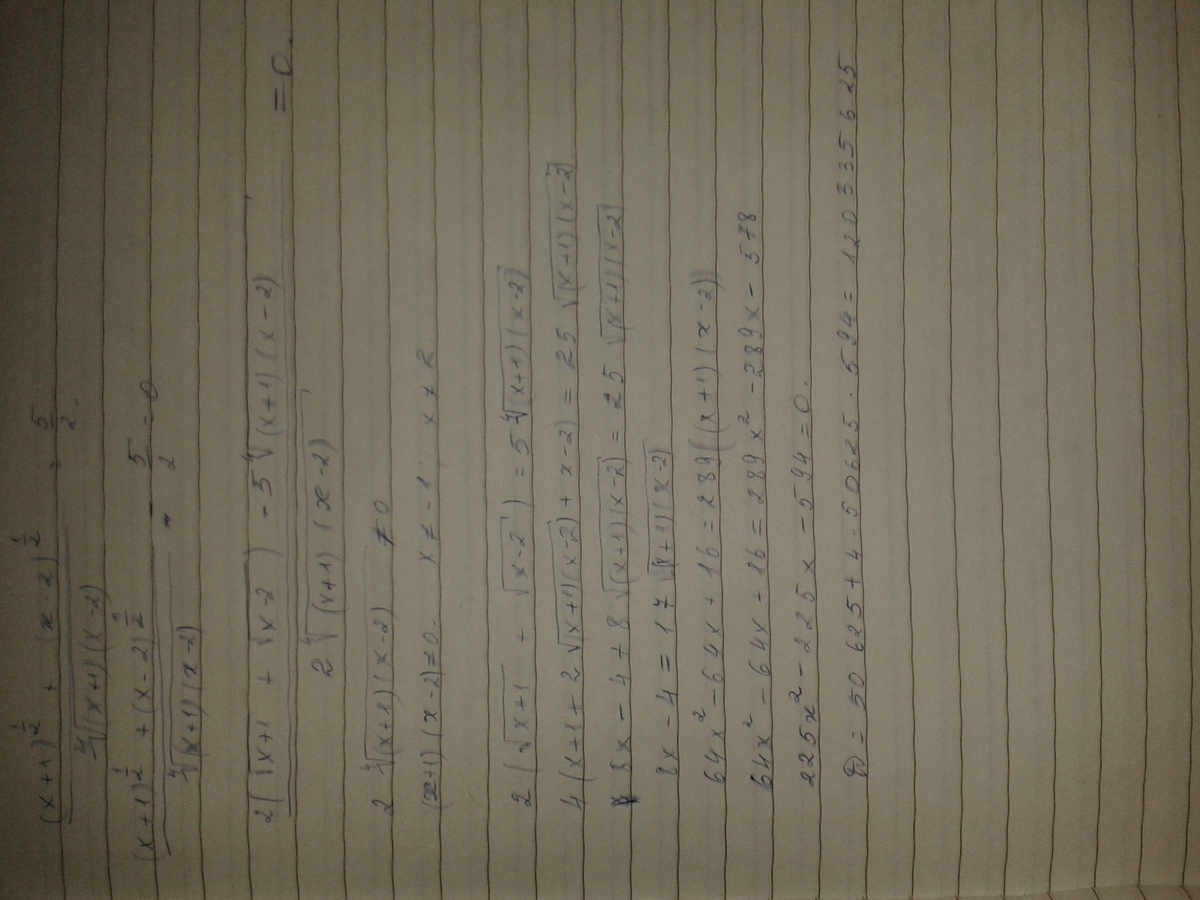 (x+1)^{1/2} + (x-2)^{1/2} / ∜((x+1)(x-2)) = 5/2.
(x+1)^{1/2} + (x-2)^{1/2} / ∜((x+1)(x-2)) - 5/2 = 0
2(√(x+1) + √(x-2)) - 5∜((x+1)(x-2)) / 2∜((x+1)(x-2)) = 0.
2∜((x+1)(x-2)) ≠ 0
(x+1)(x-2)≠0. x≠-1, x≠2
2(√(x+1) + √(x-2)) = 5∜((x+1)(x-2))
4(x+1+2√((x+1)(x-2))+x-2) = 25√((x+1)(x-2))
8x-4+8√((x+1)(x-2)) = 25√((x+1)(x-2))
8x-4 = 17√((x+1)(x-2))
64x²-64x+16=289((x+1)(x-2))
64x²-64x+16=289x²-289x-578
225x²-225x-594=0.
D=50625+4·50625·594=120335625